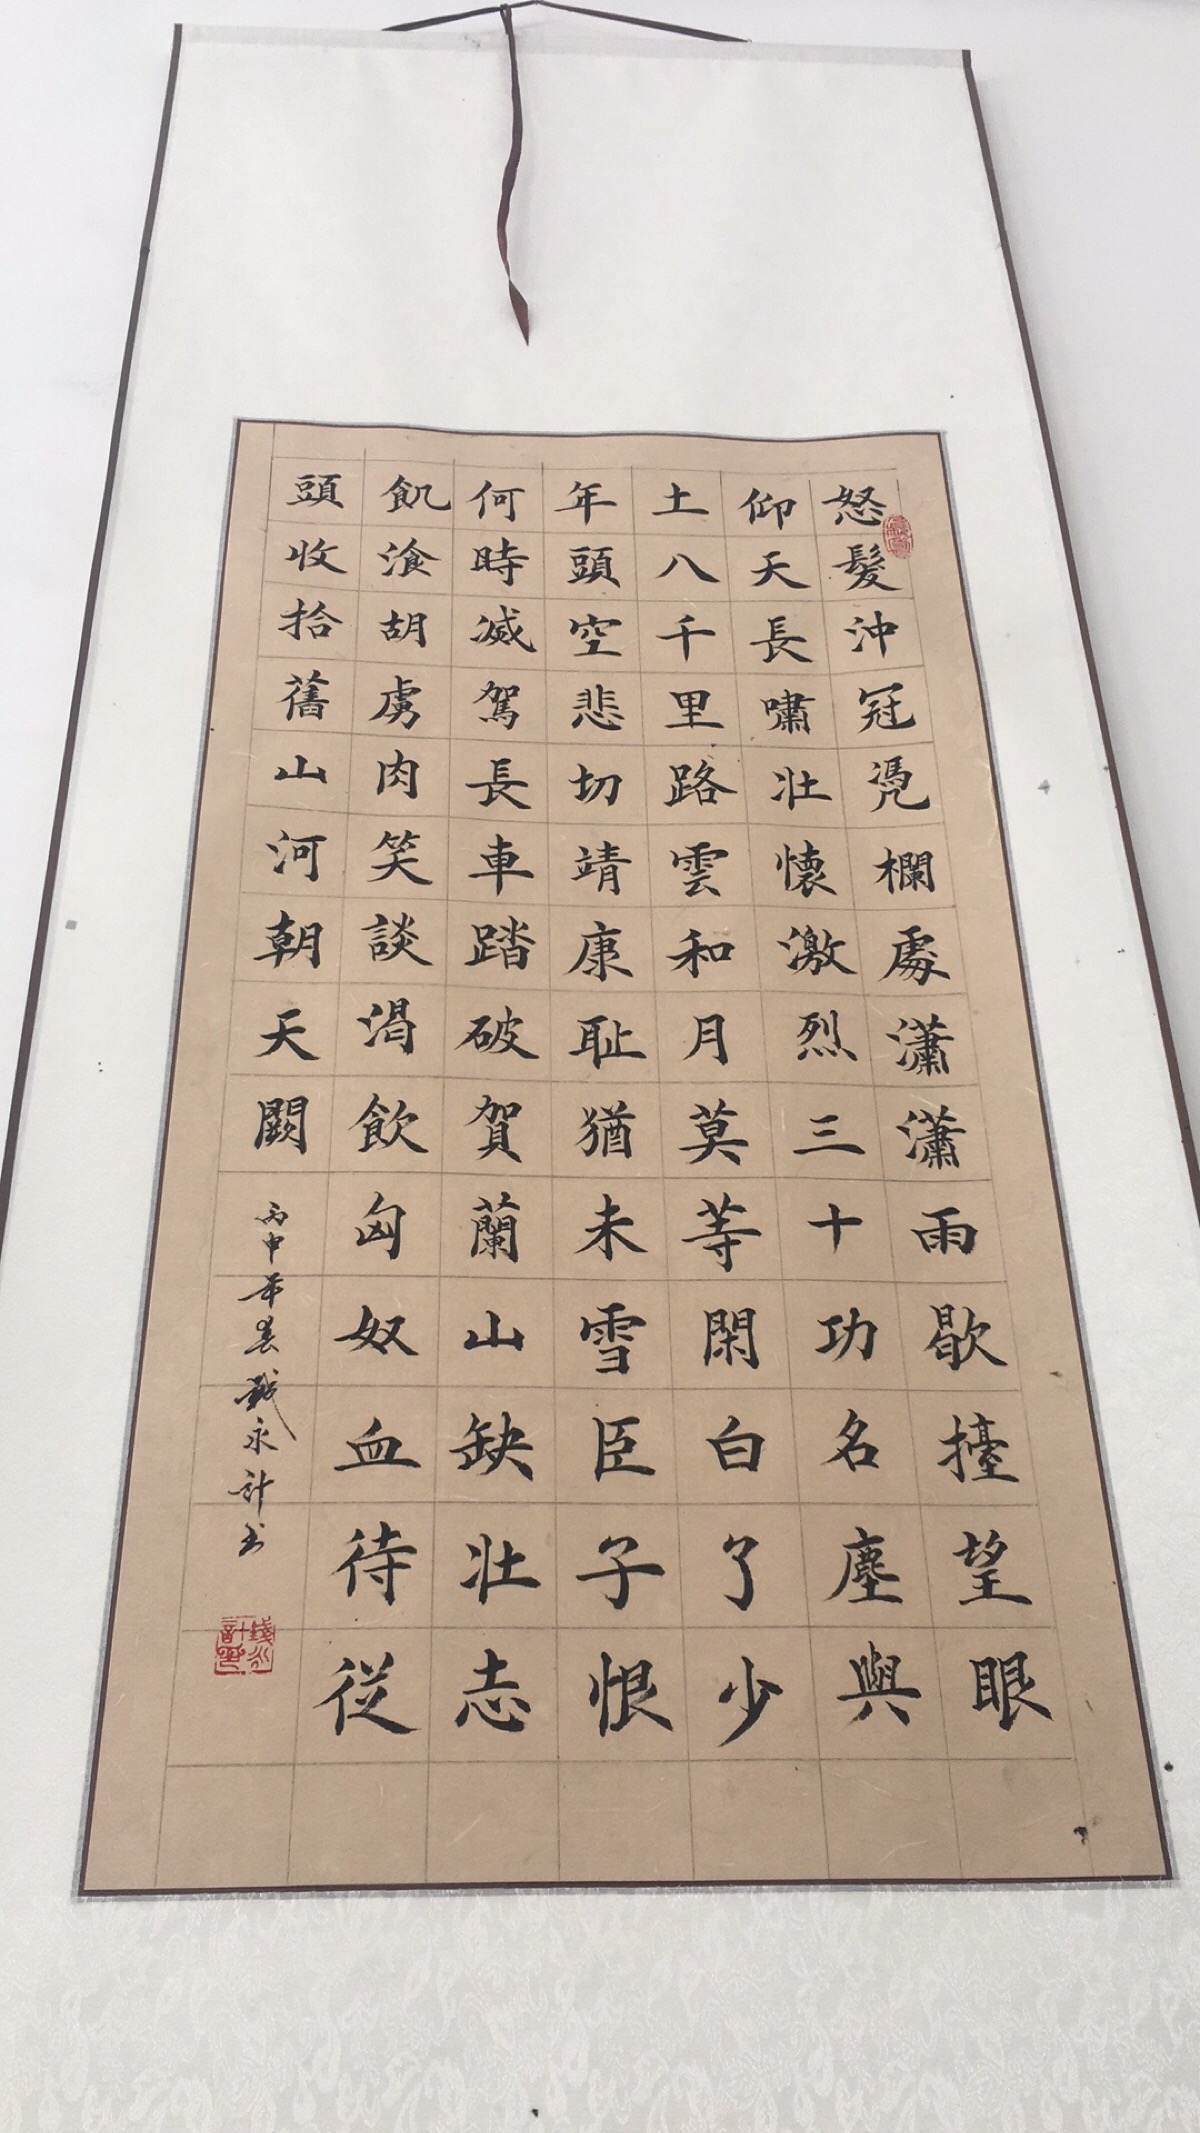 怒髮沖冠凴欄處瀟瀟雨歇擡望眼
仰天長嘯壯懷激烈三十功名塵與
土八千里路雲和月莫等閑白了少
年頭空悲切靖康耻猶未雪臣子恨
何時滅駕長車踏破賀蘭山缺壯志
飢飡胡虜肉笑談渴飲匈奴血待從
頭收拾舊山河朝天闕
丙申年春錢永計書